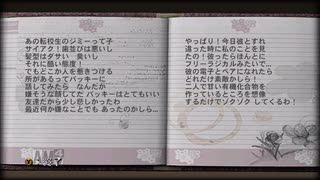 あの転校生のジミーって子
サイアク！歯並びは悪いし
髪型はダサい　臭いし
それに酷い態度！
でもどこか人を惹きつける
所があるってパッキーに
話してみたら　なんだか
嫌そうな顔してた パッキーはとてもいい
友達だから少し悲しかったわ
最近何か嫌なことでも あったのかしら…
やっぱり！今日彼とすれ
違った時に私のことを見
たの！彼ったらほんとに
フリーラジカルみたいで…
彼の電子とペアになれたら
どれだけ素敵かしら！
二人で甘い有機化合物を
作っているところを想像
するだけでゾクゾク してくるわ！